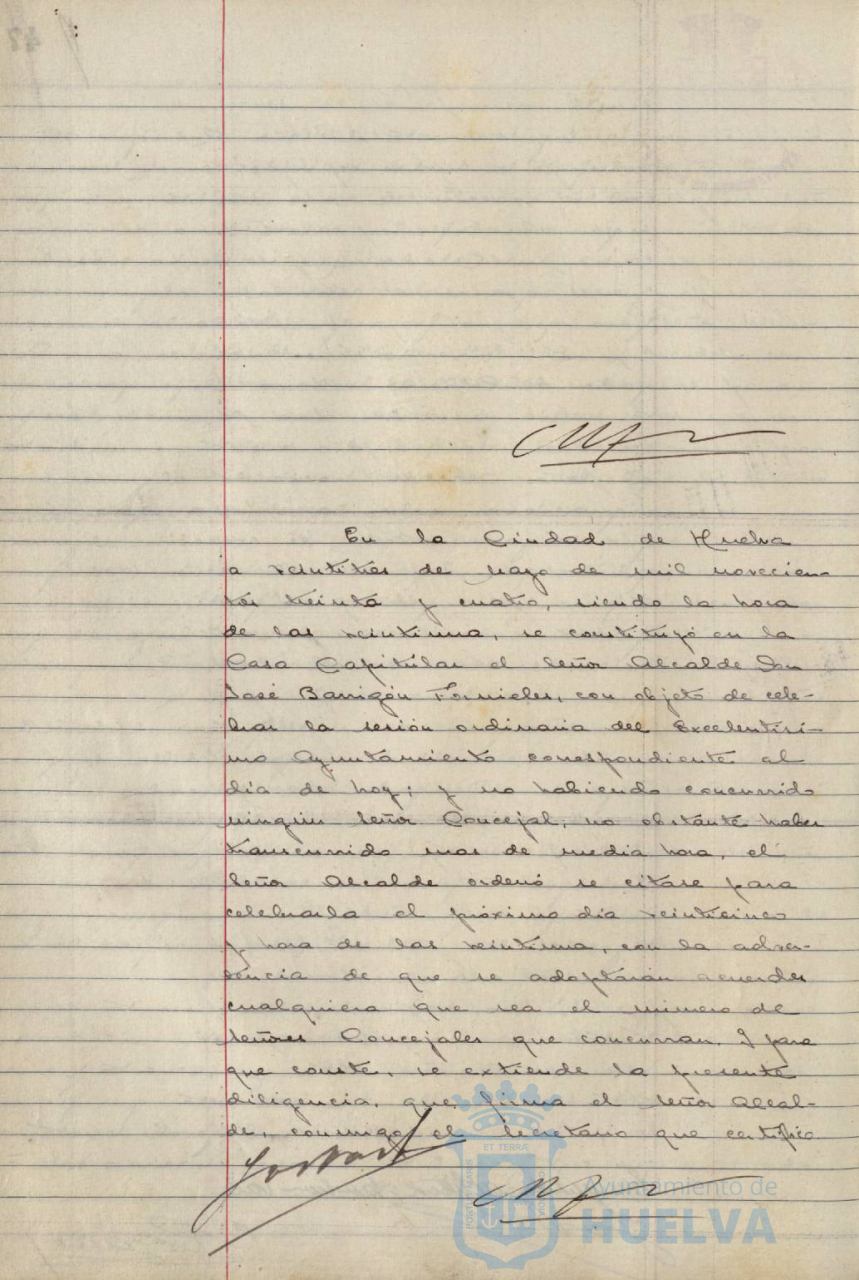 En la Ciudad de Huelva
a veintitres de mayo de mil novecien-
tos treinta y cuatro, siendo la hora
de las veintiuna, se constituyó en la
Casa Capitular el Señor Alcalde Don
José Barrigón Fornieles, con objeto de cele-
brar la sesión ordinaria del Excelentísi-
mo Ayuntamiento correspondiente al
día de hoy; y no habiendo concurrido
ningún Señor Concejal, no obstante haber
transcurrido mas de media hora, el
Señor Alcalde ordenó se citase para
celebrarla el próximo dia veinticinco
y hora de las veintiuna, con la adver-
tencia de que se adoptarán acuerdos
cualquiera que sea el número de
Señores Concejales que concurran. Y para
que conste, se extiende la presente
diligencia, que firma el Señor Alcal-
de, conmigo el Secretario que certifico
ET TERRA
Ayuntamiento de
HUELVA